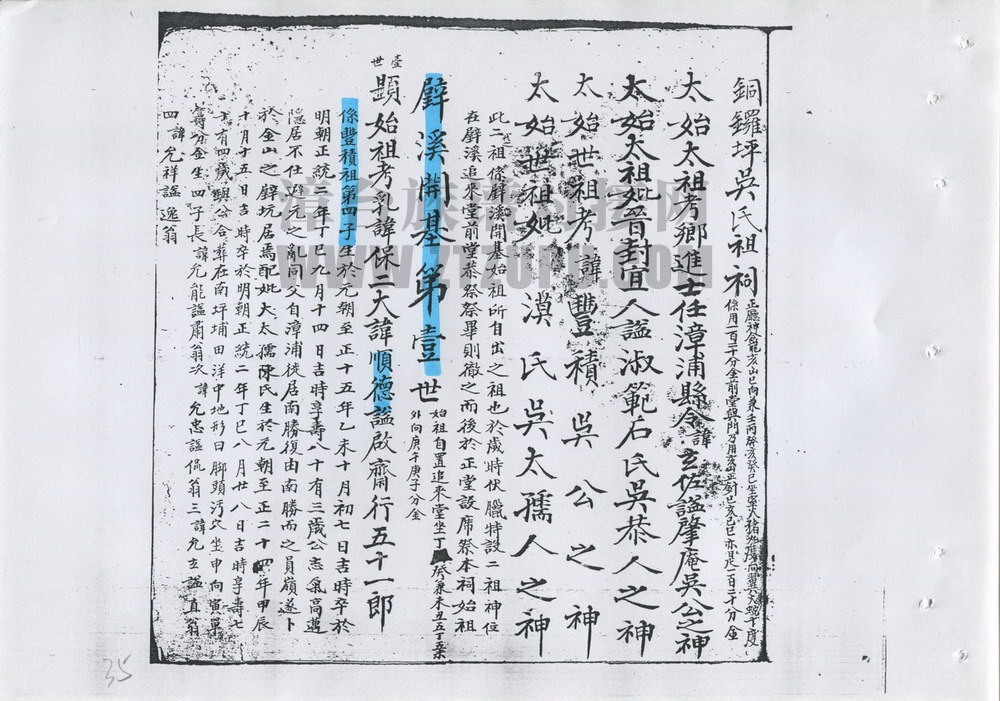 銅鑼坪吳氏祖祠
太始太祖考鄉進士任漳浦縣令諱玄佐謚肇庵吳公之神
太始太祖妣晉封宜人謚淑範石氏吳恭人之神
太始世祖考諱豐積吳公之神
太始世祖妣漠氏吳太孺人之神
此二祖係辟溪開基始祖所自出之祖也於歲時伏臘特設二祖神位
在辟溪追來堂前堂恭祭祭畢則徹之而後於正堂設席祭本祠始祖
辟溪開基第壹世
始祖自置追來堂坐丁癸兼未丑五丁
外向庚午庚子分金
壹世
顯始祖考乳諱保二大諱順德謚啟齋行五十一郎
係豐積祖第四子生於元朝至正十五年乙未十月初七日吉時卒於
明朝正統二年丁巳九月十四日吉時享壽八十有三歲公志氣高邁
隱居不仕遊元之亂同父自漳浦徙居南勝復由南勝而之員嶺遂卜
於金山之辟坑居焉配妣大太孺陳氏生於元朝至正二十四年甲辰
十月十五日吉時卒於明朝正統二年丁巳八月廿八日吉時享壽七
十有四歲與公合葬在南坪埔田洋中地形曰腳頭汚穴坐申向寅單
寅分金生四子長諱允能謚肅翁次諱允忠謚侃翁三諱允玄謚直翁
四諱允祥謚逸翁
35